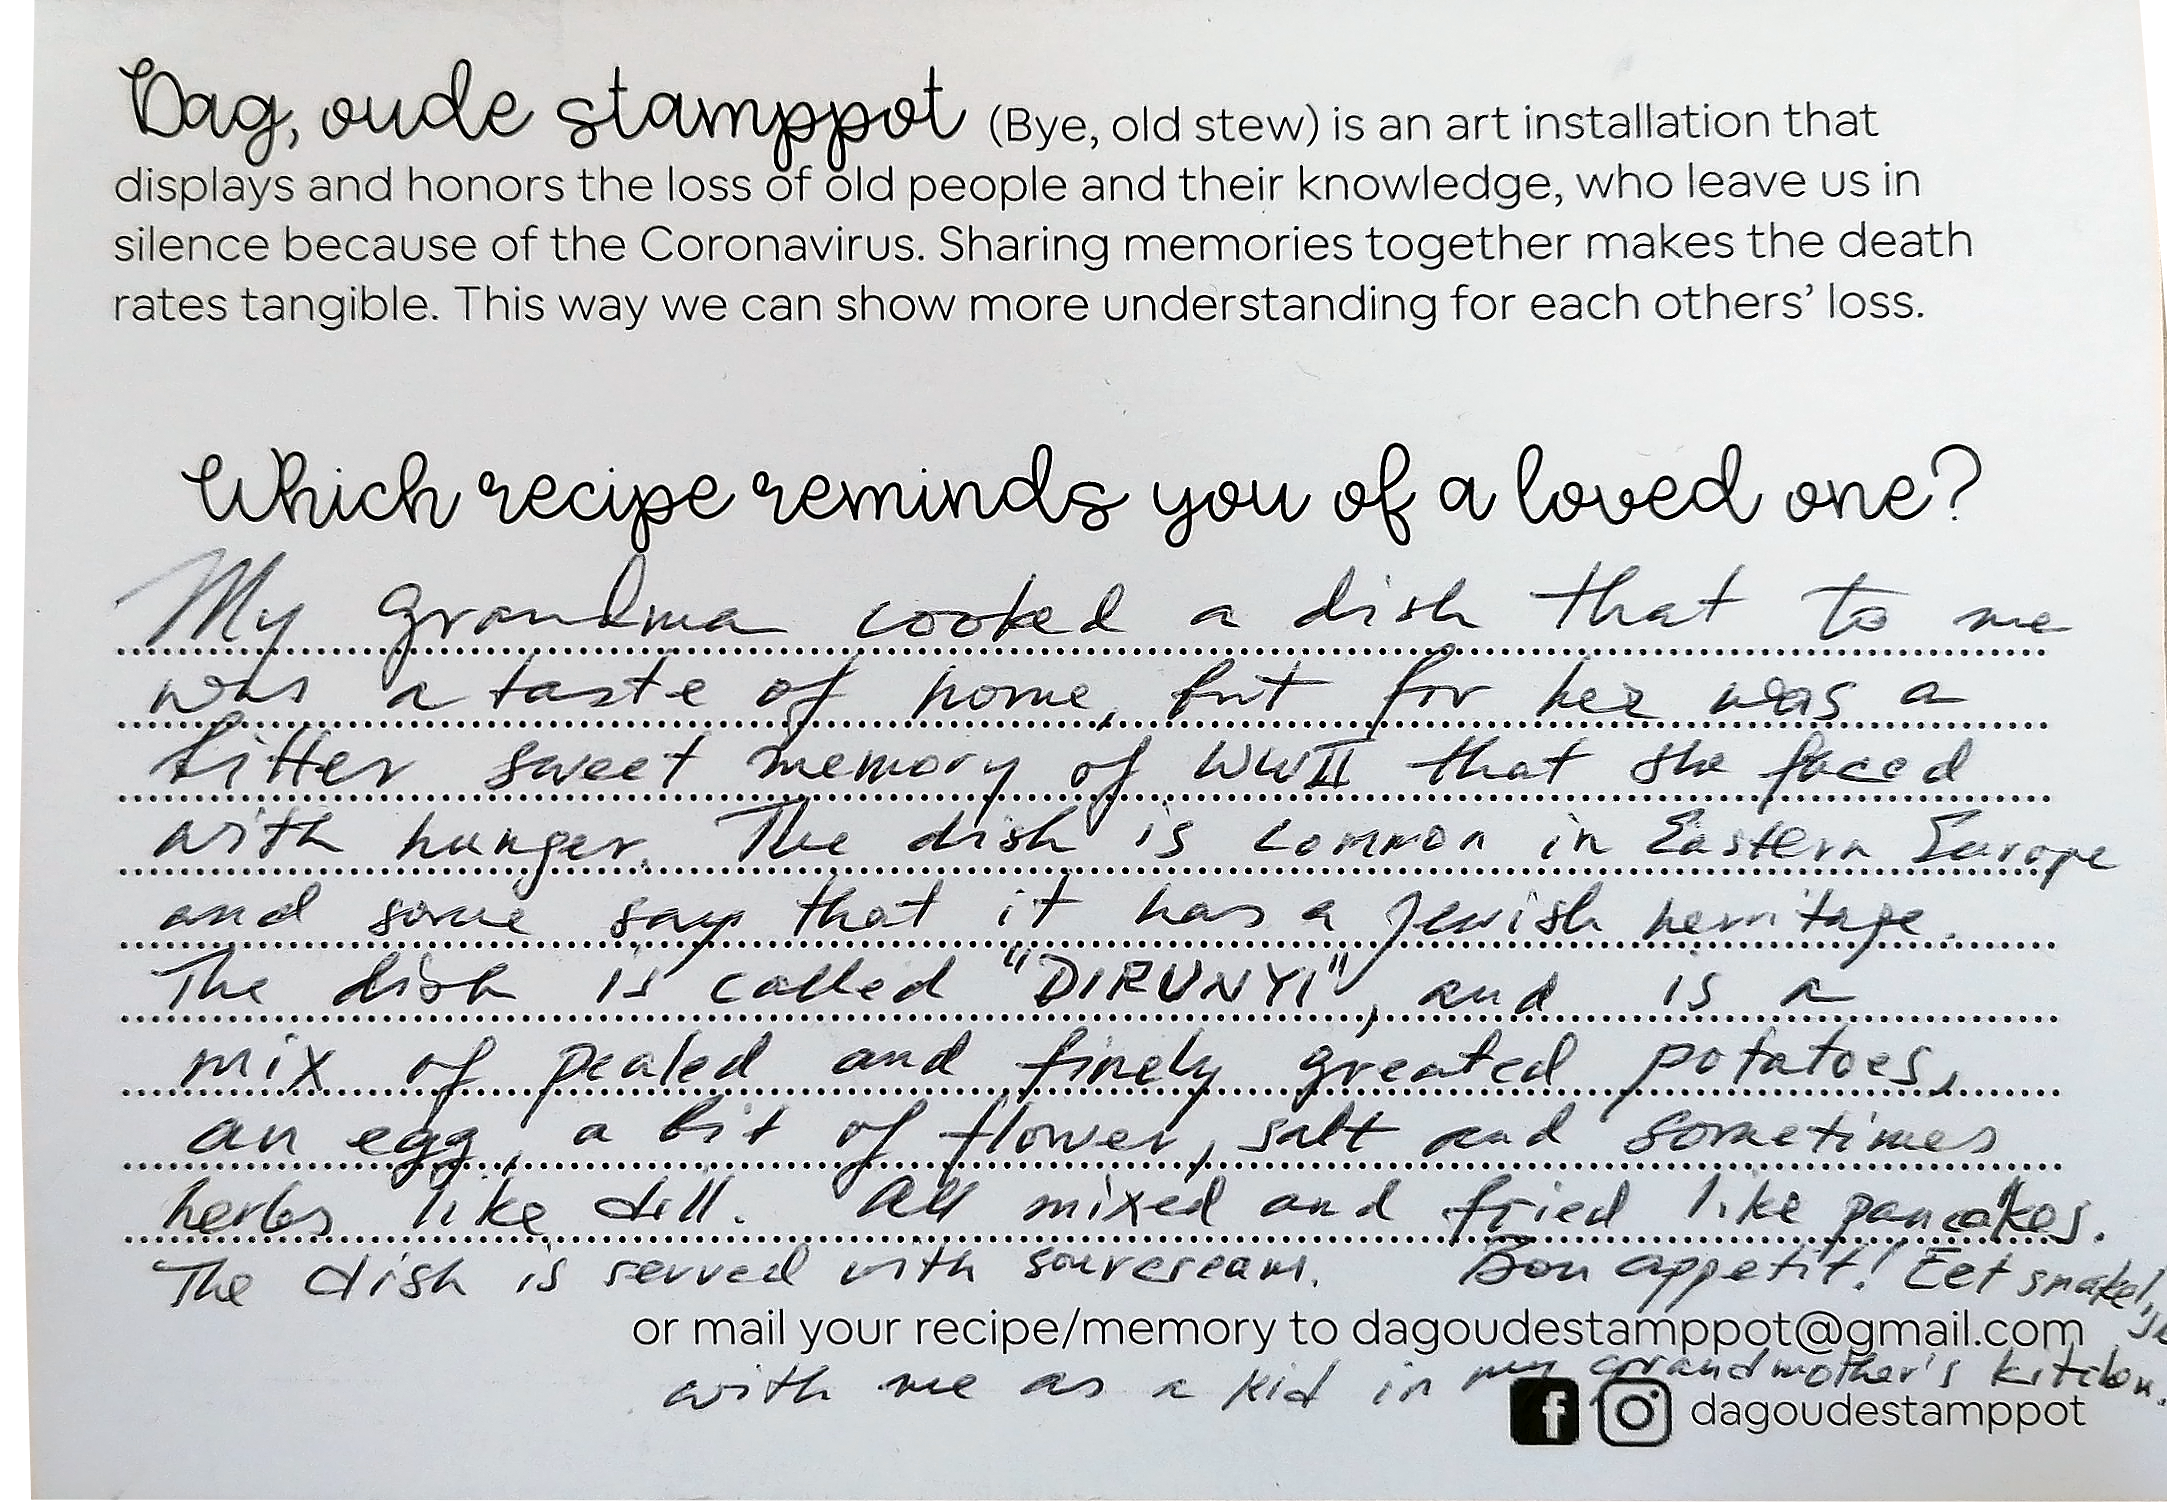 Dag, oude stamppot (Bye, old stew) is an art installation that
displays and honors the loss of old people and their knowledge, who leave us in
silence because of the Coronavirus. Sharing memories together makes the death
rates tangible. This way we can show more understanding for each others’ loss.
Which recipe reminds you of a loved one?
My grandma cooked a dish that to me
was a taste of home, but for her was a
bitter sweet memory of WWII that she faced
with hunger. The dish is common in Eastern Europe
and some say that it has a Jewish herritage.
The dish is called "DIRUNYI", and is a
mix of pealed and finely greated potatoes,
an egg, a bit of flower, salt and sometimes
herbs like dill. All mixed and fried like pancakes.
The dish is served with sourcream. Bon appetit! Eet smakelijk
or mail your recipe/memory to dagoudestamppot@gmail.com
with me as a kid in my grandmother's kitchen.
f dagoudestamppot